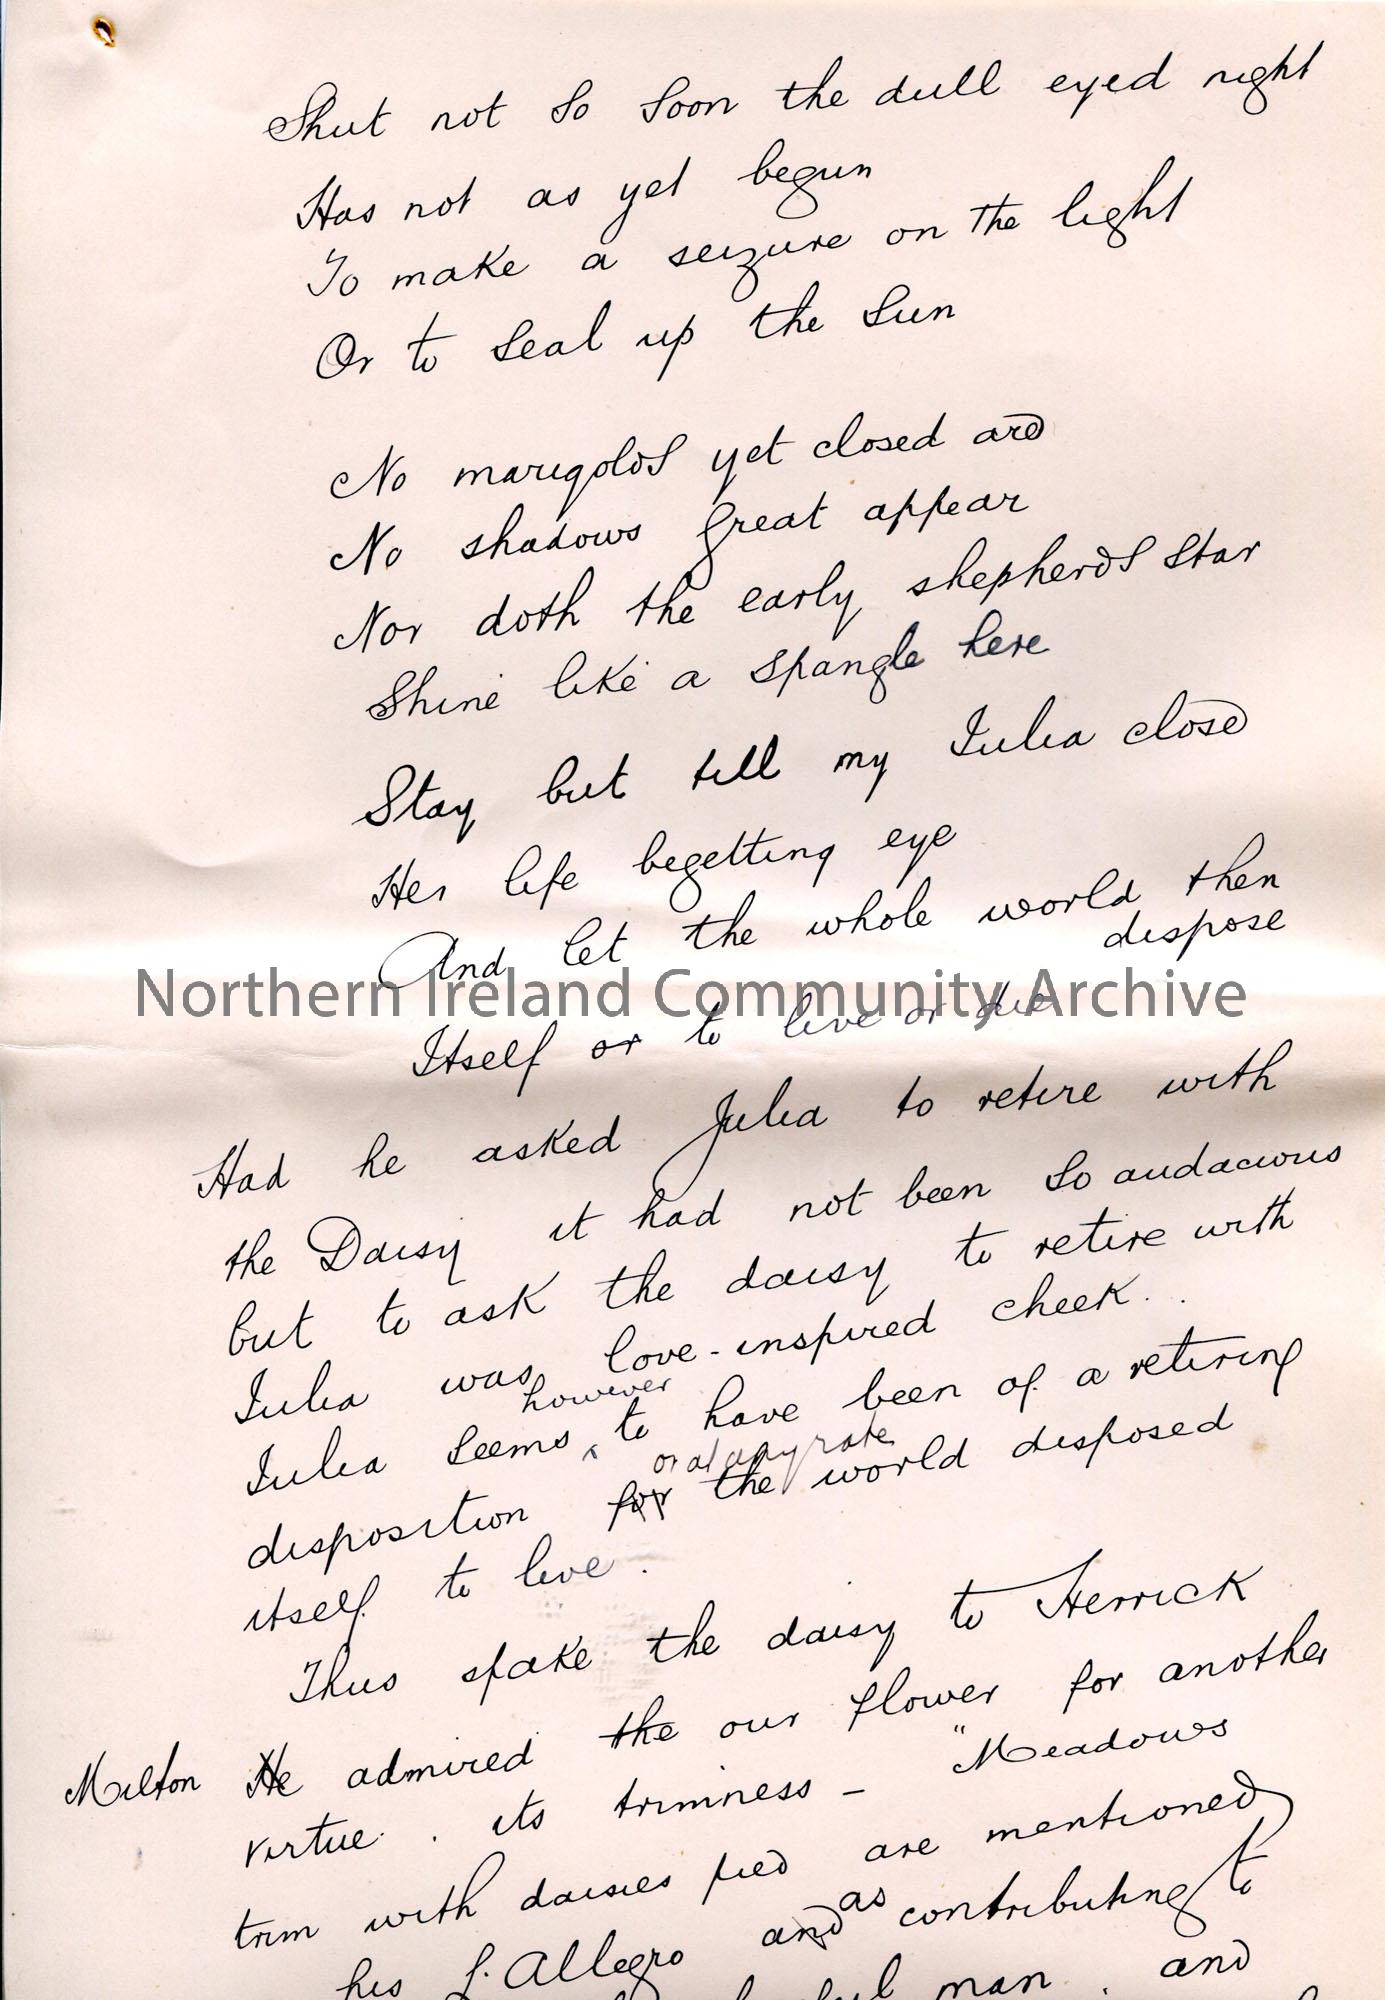 Shut not so soon the dull eyed night
Has not as yet begun
To make a seizure on the light
Or to seal up the sun
No marigolds yet closed are
No shadows great appear
Nor doth the early shepherds star
Shine like a spangle here
Stay but till my Julia close
Her life begetting eye
And let the whole world then
dispose
Itself or to live or die
Northern Ireland Community Archive
Had he asked Julia to retire with
the Daisy it had not been so audacious
but to ask the daisy to retire with
Julia was love-inspired cheek..
Julia seems however to have been of a retiring
disposition for or at any rate the world disposed
itself to live.
Thus spake the daisy to Herrick
Milton He admired the our flower for another
virtue. its trimness - "Meadows
trim with daisies pied are mentioned
his L'Allegro and as contributing to
man. and